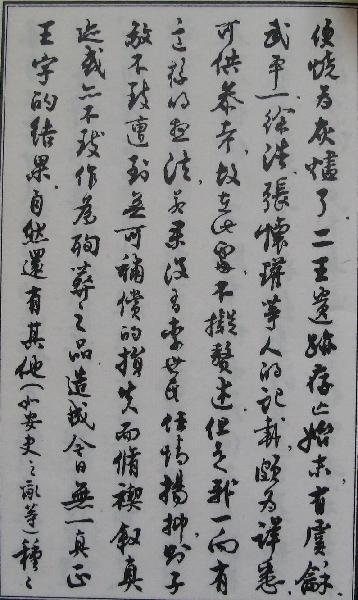 便燒为灰燼了.二王遺跡存亡始末,有虞龢、
武平一、徐浩、張懷瓘等人的記載,頗为詳悉,
可供參考,故在此處不擬贅述.但是我一向有
這樣的想法,若果沒有李世民任情揚抑,則子
敬不致遭到無可補償的損失,而脩禊敘真
迹或亦不致作为殉葬之品,造成今日無一真正
王字的結果.自然還有其他(如安史之亂等)種〻